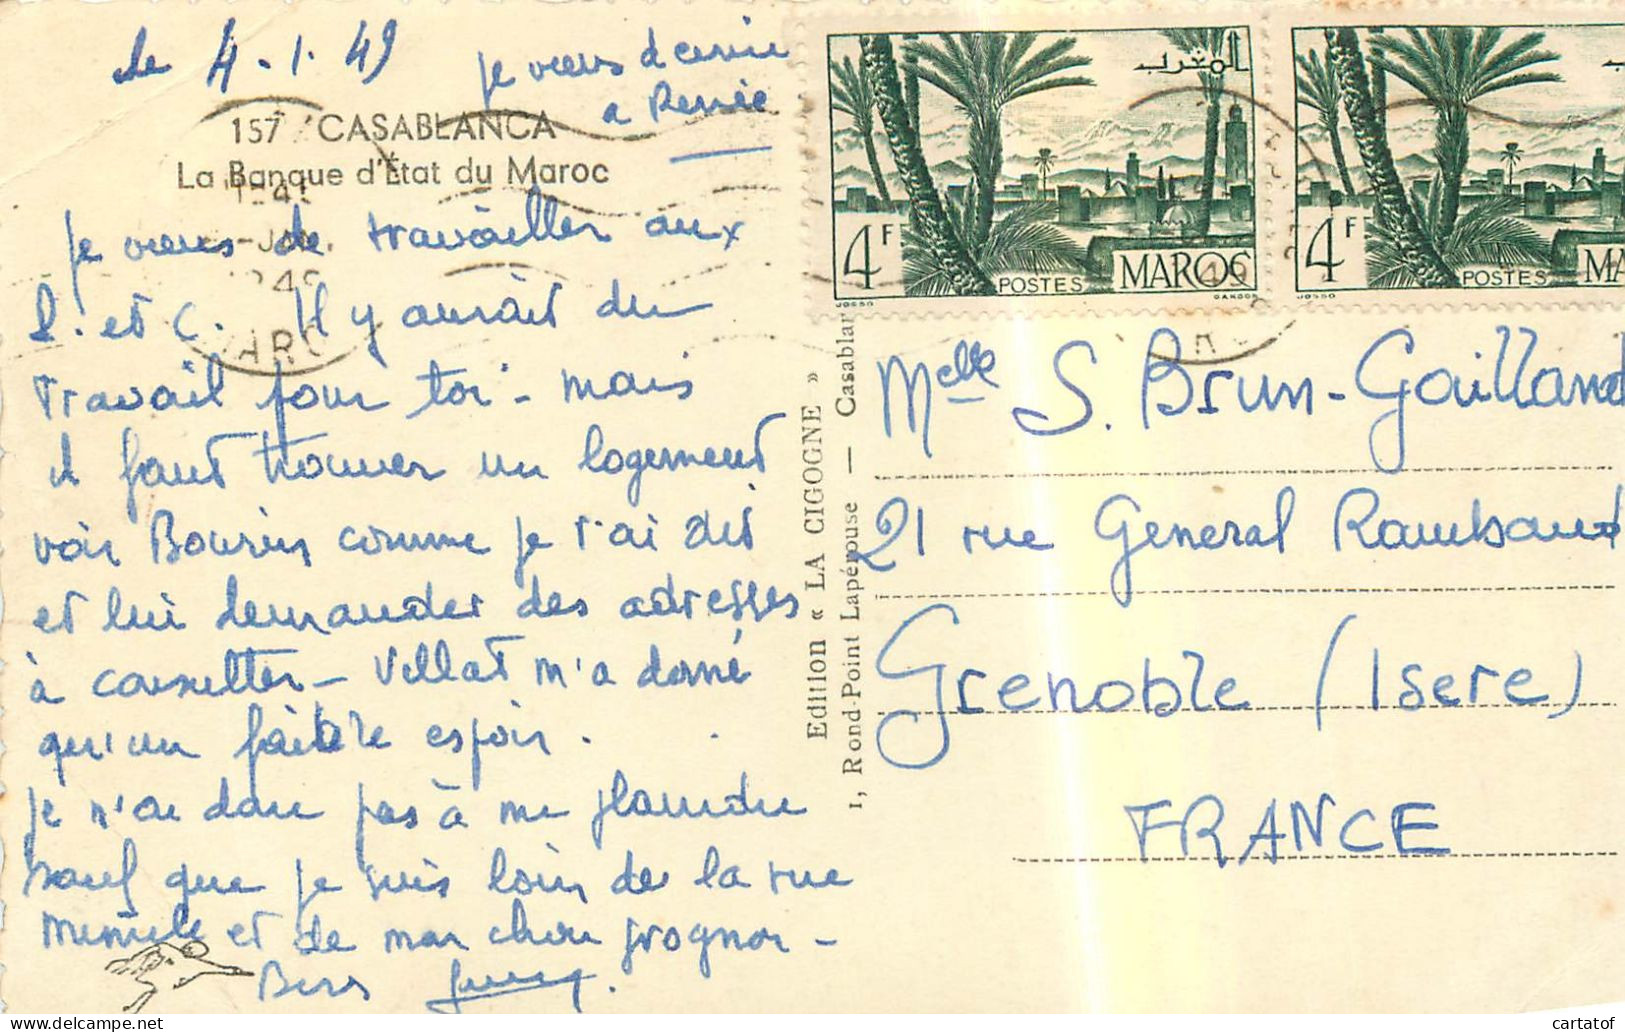 le 4.1.49
je viens d'ecrire
a Renée
157 CASABLANCA
La Banque d'État du Maroc
je viens de travailler aux
S. et C. Il y aurait du
travail pour toi - mais
il faut trouver un logement
voir Bourin comme je t'ai dit
et lui demander des adresses
à consulter - Villat m'a donné
qu'un faible espoir.
je n'ai donc pas à me plaindre
sauf que je suis loin de la rue
et de mon chou grognon -
Bers
Edition « LA CIGOGNE »
1, Rond-Point Lapérouse — Casablan
المغرب
4F
POSTES
MAROC
JOSSO
GANDON
4F
POSTES
MA
JOSSO
Melle S. Brun-Gailland
21 rue General Rambaud
Grenoble (Isere)
FRANCE
cartatof